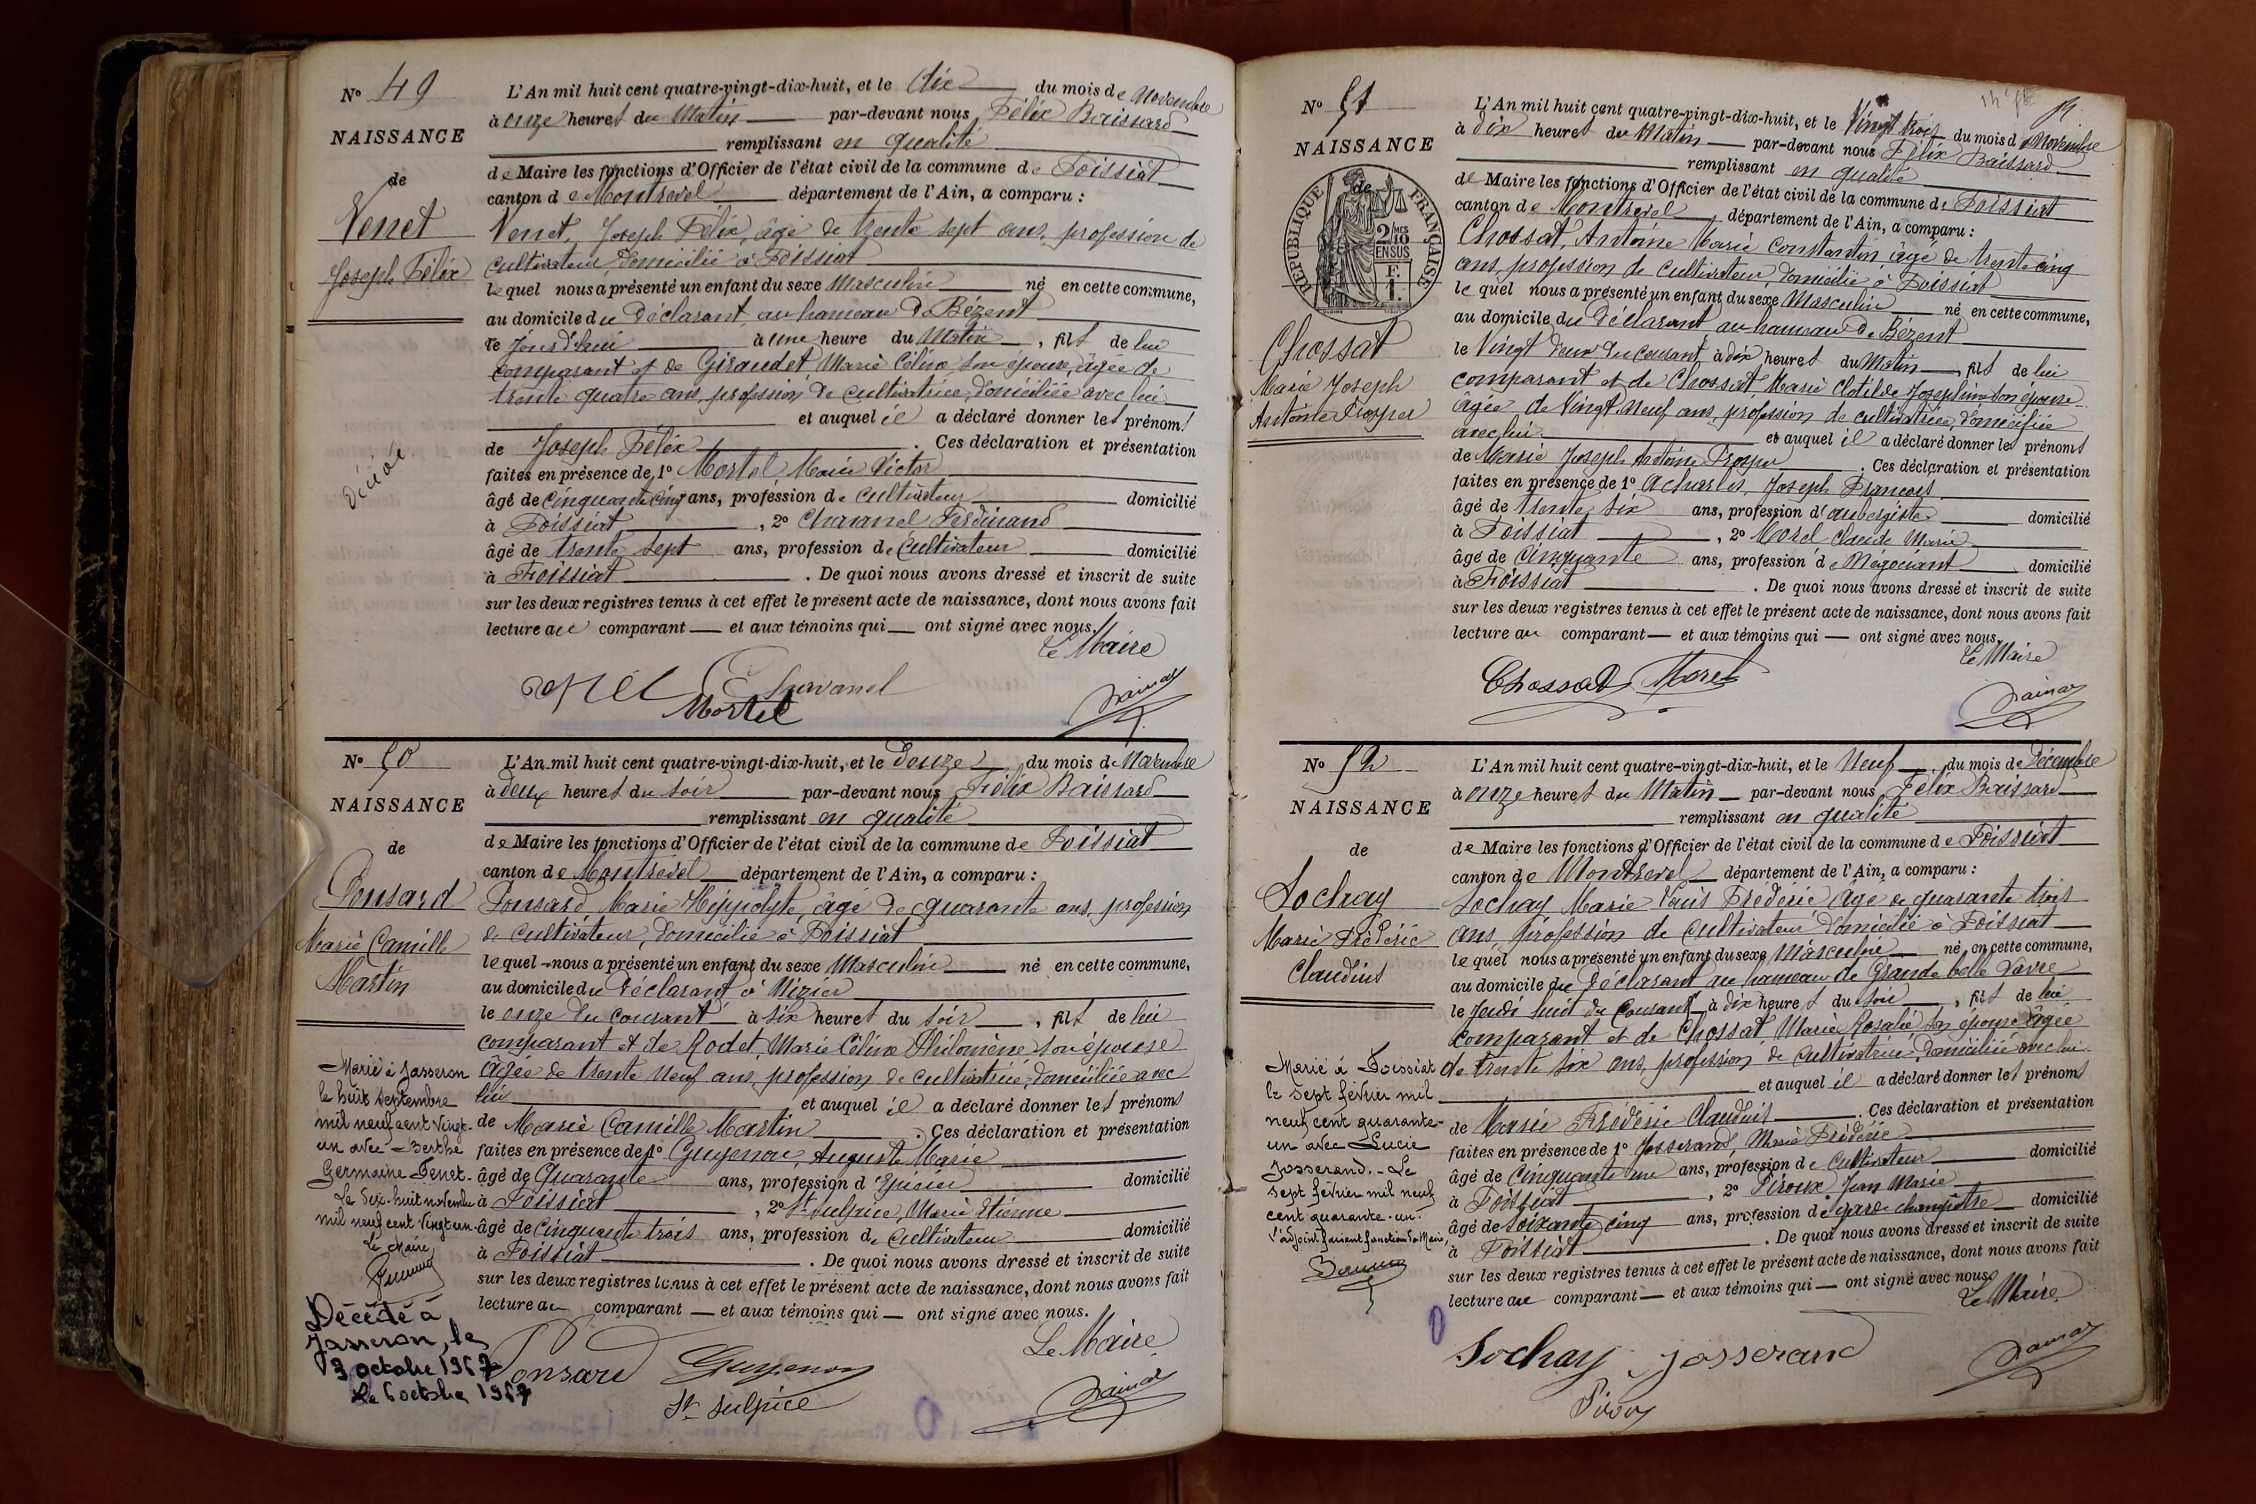 N° 49
NAISSANCE
de
Venet
Joseph Félix
décédé
L'An mil huit cent quatre-vingt-dix-huit, et le dix du mois de Novembre
à onze heures du Matin par-devant nous Félix Baissard
remplissant en qualité
de Maire les fonctions d'Officier de l'état civil de la commune de Foissiat
canton de Montrevel département de l'Ain, a comparu :
Venet, Joseph Félix, âgé de trente sept ans, profession de
cultivateur, domicilié à Foissiat
lequel nous a présenté un enfant du sexe Masculin né en cette commune,
au domicile du Déclarant, au hameau de Bézent
le jourd'hui à une heure du Matin, fils de lui
comparant et de Giraudet Marie Célina son épouse, âgée de
trente quatre ans, profession de cultivatrice, domiciliée avec lui
et auquel il a déclaré donner les prénoms
de Joseph Félix. Ces déclaration et présentation
faites en présence de 1° Mortel Marie Victor
âgé de cinquante cinq ans, profession de cultivateur domicilié
à Foissiat, 2° Chavanel Ferdinand
âgé de trente sept ans, profession de Cultivateur domicilié
à Foissiat. De quoi nous avons dressé et inscrit de suite
sur les deux registres tenus à cet effet le présent acte de naissance, dont nous avons fait
lecture au comparant et aux témoins qui ont signé avec nous.
Le Maire
Chavanel
Mortel
N° 50
NAISSANCE
de
Ponsard
Marie Camille
Martin
Marié à Jasseron
le huit septembre
mil neuf cent vingt-
un avec Berthe
Germaine Venet.
Le dix-huit novembre
mil neuf cent vingt un
Le Maire
Décédé à
Jasseron, le
3 octobre 1967
Le 6 octobre 1967
L'An mil huit cent quatre-vingt-dix-huit, et le Douze du mois de Novembre
à deux heures du soir par-devant nous Félix Baissard
remplissant en qualité
de Maire les fonctions d'Officier de l'état civil de la commune de Foissiat
canton de Montrevel département de l'Ain, a comparu :
Ponsard Marie Hippolyte, âgé de quarante ans, profession
de cultivateur, domicilié à Foissiat
lequel nous a présenté un enfant du sexe Masculin né en cette commune,
au domicile du Déclarant à Vizier
le onze du courant à six heures du soir, fils de lui
comparant et de Rodet, Marie Célina Philomène son épouse
âgée de trente neuf ans, profession de cultivatrice, domiciliée avec
lui et auquel il a déclaré donner les prénoms
de Marie Camille Martin. Ces déclaration et présentation
faites en présence de 1° Guyenon, Auguste Marie
âgé de Quarante ans, profession d'Epicier domicilié
à Foissiat, 2° St Sulpice, Marie Etienne
âgé de cinquante trois ans, profession de cultivateur domicilié
à Foissiat. De quoi nous avons dressé et inscrit de suite
sur les deux registres tenus à cet effet le présent acte de naissance, dont nous avons fait
lecture au comparant et aux témoins qui ont signé avec nous.
Le Maire
Ponsard Guyenon
St Sulpice
N° 51
NAISSANCE
de
RÉPUBLIQUE FRANÇAISE
2/10 MES
EN SUS
1 F.
Chossat
Marie Joseph
Antoine Prosper
L'An mil huit cent quatre-vingt-dix-huit, et le Vingt trois du mois de Novembre
à dix heures du Matin par-devant nous Félix Baissard
remplissant en qualité
de Maire les fonctions d'Officier de l'état civil de la commune de Foissiat
canton de Montrevel, département de l'Ain, a comparu :
Chossat, Antoine Marie Constantin âgé de trente cinq
ans, profession de cultivateur, domicilié à Foissiat
lequel nous a présenté un enfant du sexe Masculin né en cette commune,
au domicile du Déclarant au hameau de Bézent
le Vingt deux du courant à dix heures du Matin, fils de lui
comparant et de Chossat, Marie Clotilde Joséphine son épouse
âgée de Vingt neuf ans, profession de cultivatrice, domiciliée
avec lui et auquel il a déclaré donner les prénoms
de Marie Joseph Antoine Prosper. Ces déclaration et présentation
faites en présence de 1° Acharles, Joseph François
âgé de trente six ans, profession d'aubergiste domicilié
à Foissiat, 2° Morel Claude Marie
âgé de Cinquante ans, profession de Négociant domicilié
à Foissiat. De quoi nous avons dressé et inscrit de suite
sur les deux registres tenus à cet effet le présent acte de naissance, dont nous avons fait
lecture au comparant et aux témoins qui ont signé avec nous.
Le Maire
Chossat Morel
N° 52
NAISSANCE
de
Sochay
Marie Frédéric
Claudius
Marié à Foissiat
le sept février mil
neuf cent quarante-
un avec Lucie
Josserand. - Le
sept février mil neuf
cent quarante-un.
l'adjoint faisant fonction de Maire,
L'An mil huit cent quatre-vingt-dix-huit, et le Neuf du mois de Décembre
à onze heures du Matin par-devant nous Félix Baissard
remplissant en qualité
de Maire les fonctions d'Officier de l'état civil de la commune de Foissiat
canton de Montrevel département de l'Ain, a comparu :
Sochay Marie Louis Frédéric âgé de quarante trois
ans, profession de cultivateur domicilié à Foissiat
lequel nous a présenté un enfant du sexe Masculin né en cette commune,
au domicile du Déclarant au hameau de Grande belle Vavre
le Jeudi huit du Courant à dix heures du soir, fils de lui
comparant et de Chossat, Marie Rosalie son épouse âgée
de trente six ans, profession de cultivatrice, domiciliée avec lui
et auquel il a déclaré donner les prénoms
de Marie Frédéric Claudius. Ces déclaration et présentation
faites en présence de 1° Josserand, Marie Frédéric
âgé de Cinquante un ans, profession de cultivateur domicilié
à Foissiat, 2° Piroux Jean Marie
âgé de soixante cinq ans, profession de garde champêtre domicilié
à Foissiat. De quoi nous avons dressé et inscrit de suite
sur les deux registres tenus à cet effet le présent acte de naissance, dont nous avons fait
lecture au comparant et aux témoins qui ont signé avec nous.
Le Maire
Sochay Josserand